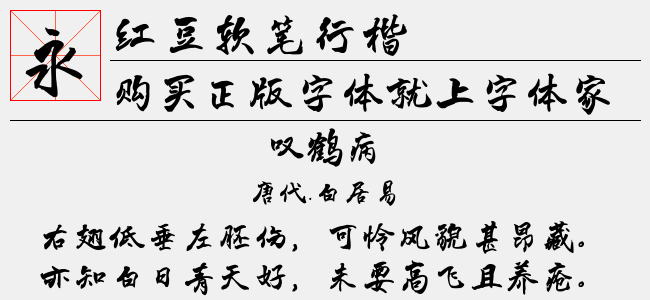 永
红豆软笔行楷
购买正版字体就上字体家
叹鹤病
唐代.白居易
右翅低垂左胫伤，可怜风貌甚昂藏。
亦知白日青天好，未要高飞且养疮。